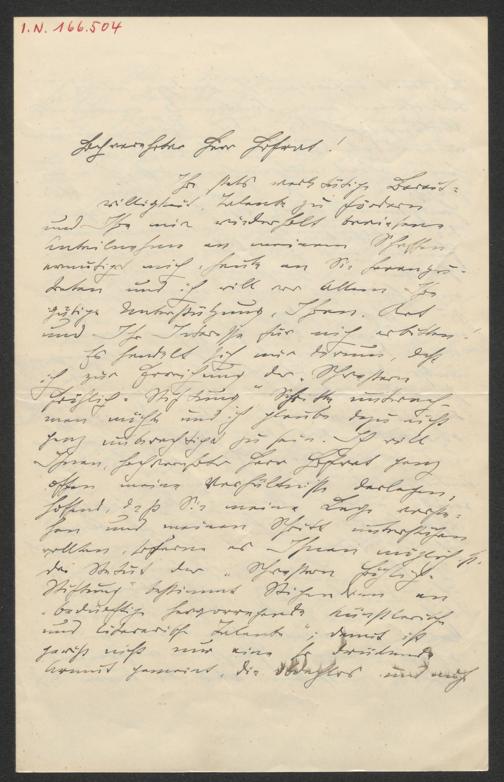 I.N. 166.504
Hochverehrter Herr Hofrat!
Ihre stets werktätige Bereit-
willigkeit, Talente zu fördern
und Ihre mir wiederholt bewiesene
Anteilnahme an meinem Schaffen
ermutigt mich, heute an Sie heranzu-
treten und ich will vor allem Ihre
gütige Unterstützung, Ihren Rat
und Ihr Interesse für mich erbitten.
Es handelt sich mir darum, daß
ich zur Erreichung der „Schwestern
Fröhlich-Stiftung" Schritte unterneh-
men möchte und ich glaube dazu nicht
ganz unberechtigt zu sein. Ich will
Ihnen, hochverehrter Herr Hofrat ganz
offen meine Verhältnisse darlegen,
hoffend, daß Sie meine Lage verste-
hen und meinen Schritt unterstützen
wollten, soferne es Ihnen möglich ist.
Die Statut der „Schwestern Fröhlich-
Stiftung" bestimmt Stipendien an
„bedürftige hervorragende künstlerische
und literarische Talente"; damit ist
gewiß nicht nur eine so drückende
Armut gemeint, die und auch